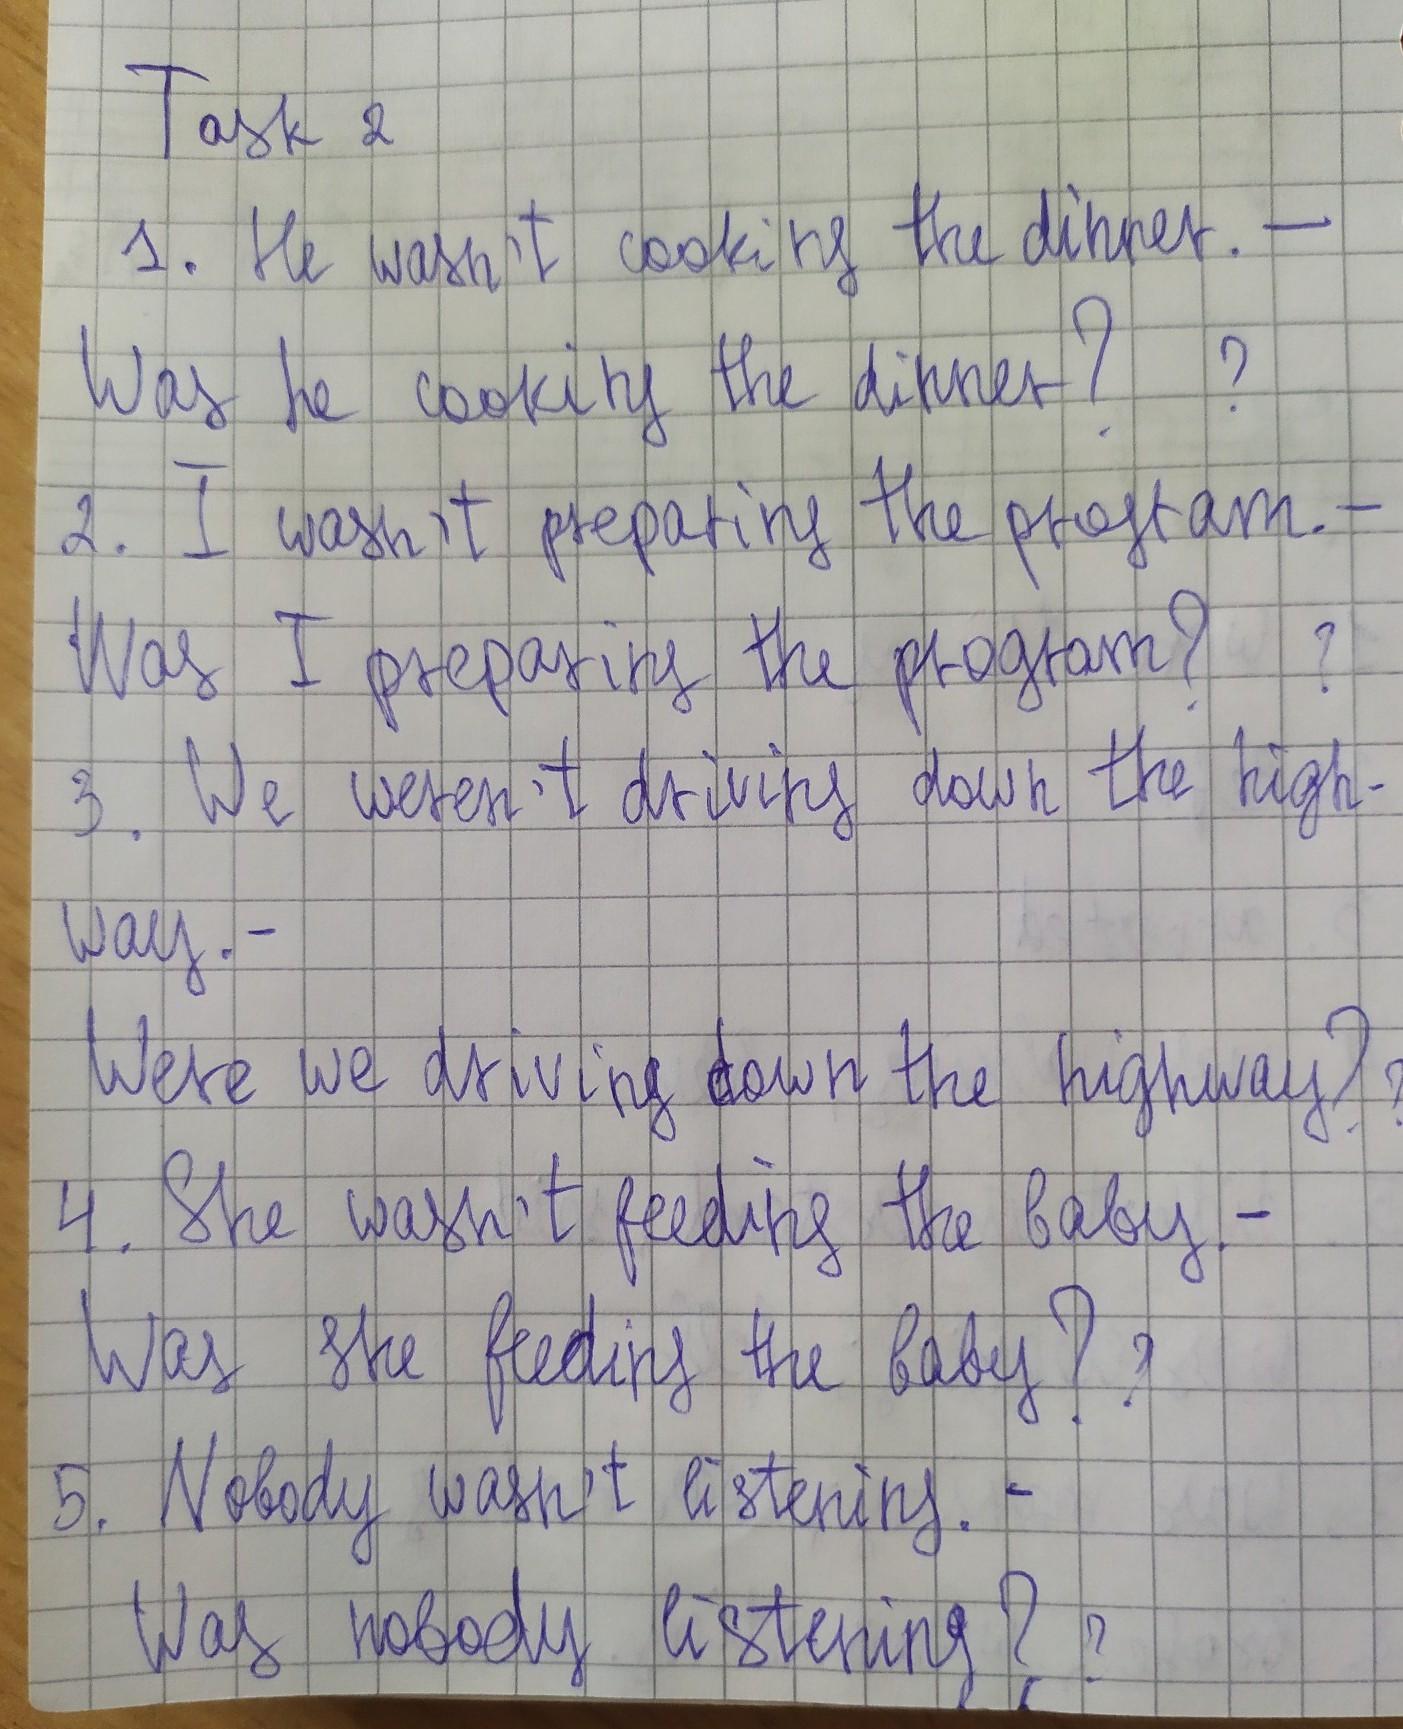 Task 2
1. He wasn't cooking the dinner. —
Was he cooking the dinner? ?
2. I wasn't preparing the program. –
Was I preparing the program? ?
3. We weren't driving down the high-
way. -
Were we driving down the highway? ?
4. She wasn't feeding the baby. -
Was she feeding the baby? ?
5. Nobody wasn't listening. -
Was nobody listening? ?